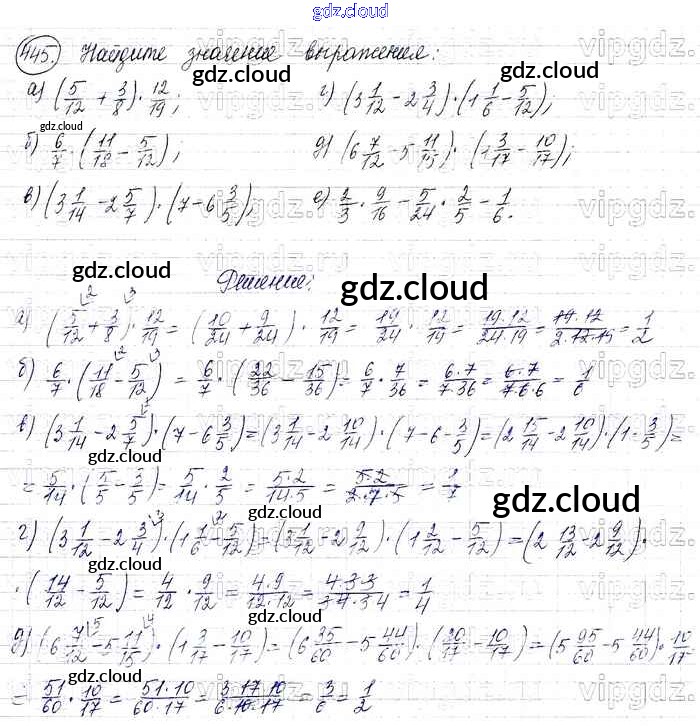 gdz.cloud
445. Найдите значение выражения:
а) (5/12 + 3/8) · 12/19; г) (3 1/12 - 2 3/4) · (1 1/6 - 5/12);
б) 6/7 · (11/18 - 5/12); д) (6 7/12 - 5 11/15) · (1 3/17 - 10/17);
в) (3 1/14 - 2 5/7) · (7 - 6 3/5); е) 2/3 · 9/16 - 5/24 · 2/5 - 1/6.
Решение:
а) (5/12 + 3/8) · 12/19 = (10/24 + 9/24) · 12/19 = 19/24 · 12/19 = 19·12/24·19 = 19·12/2·12·19 = 1/2
б) 6/7 · (11/18 - 5/12) = 6/7 · (22/36 - 15/36) = 6/7 · 7/36 = 6·7/7·36 = 6·7/7·6·6 = 1/6
в) (3 1/14 - 2 5/7) · (7 - 6 3/5) = (3 1/14 - 2 10/14) · (7 - 6 - 3/5) = (2 15/14 - 2 10/14) · (1 - 3/5) =
= 5/14 · (5/5 - 3/5) = 5/14 · 2/5 = 5·2/14·5 = 5·2/2·7·5 = 1/7
г) (3 1/12 - 2 3/4) · (1 1/6 - 5/12) = (3 1/12 - 2 9/12) · (1 2/12 - 5/12) = (2 13/12 - 2 9/12) ·
· (14/12 - 5/12) = 4/12 · 9/12 = 4·9/12·12 = 4·3·3/3·4·3·4 = 1/4
д) (6 7/12 - 5 11/15) · (1 3/17 - 10/17) = (6 35/60 - 5 44/60) · (20/17 - 10/17) = (5 95/60 - 5 44/60) · 10/17
= 51/60 · 10/17 = 51·10/60·17 = 3·17·10/6·10·17 = 3/6 = 1/2